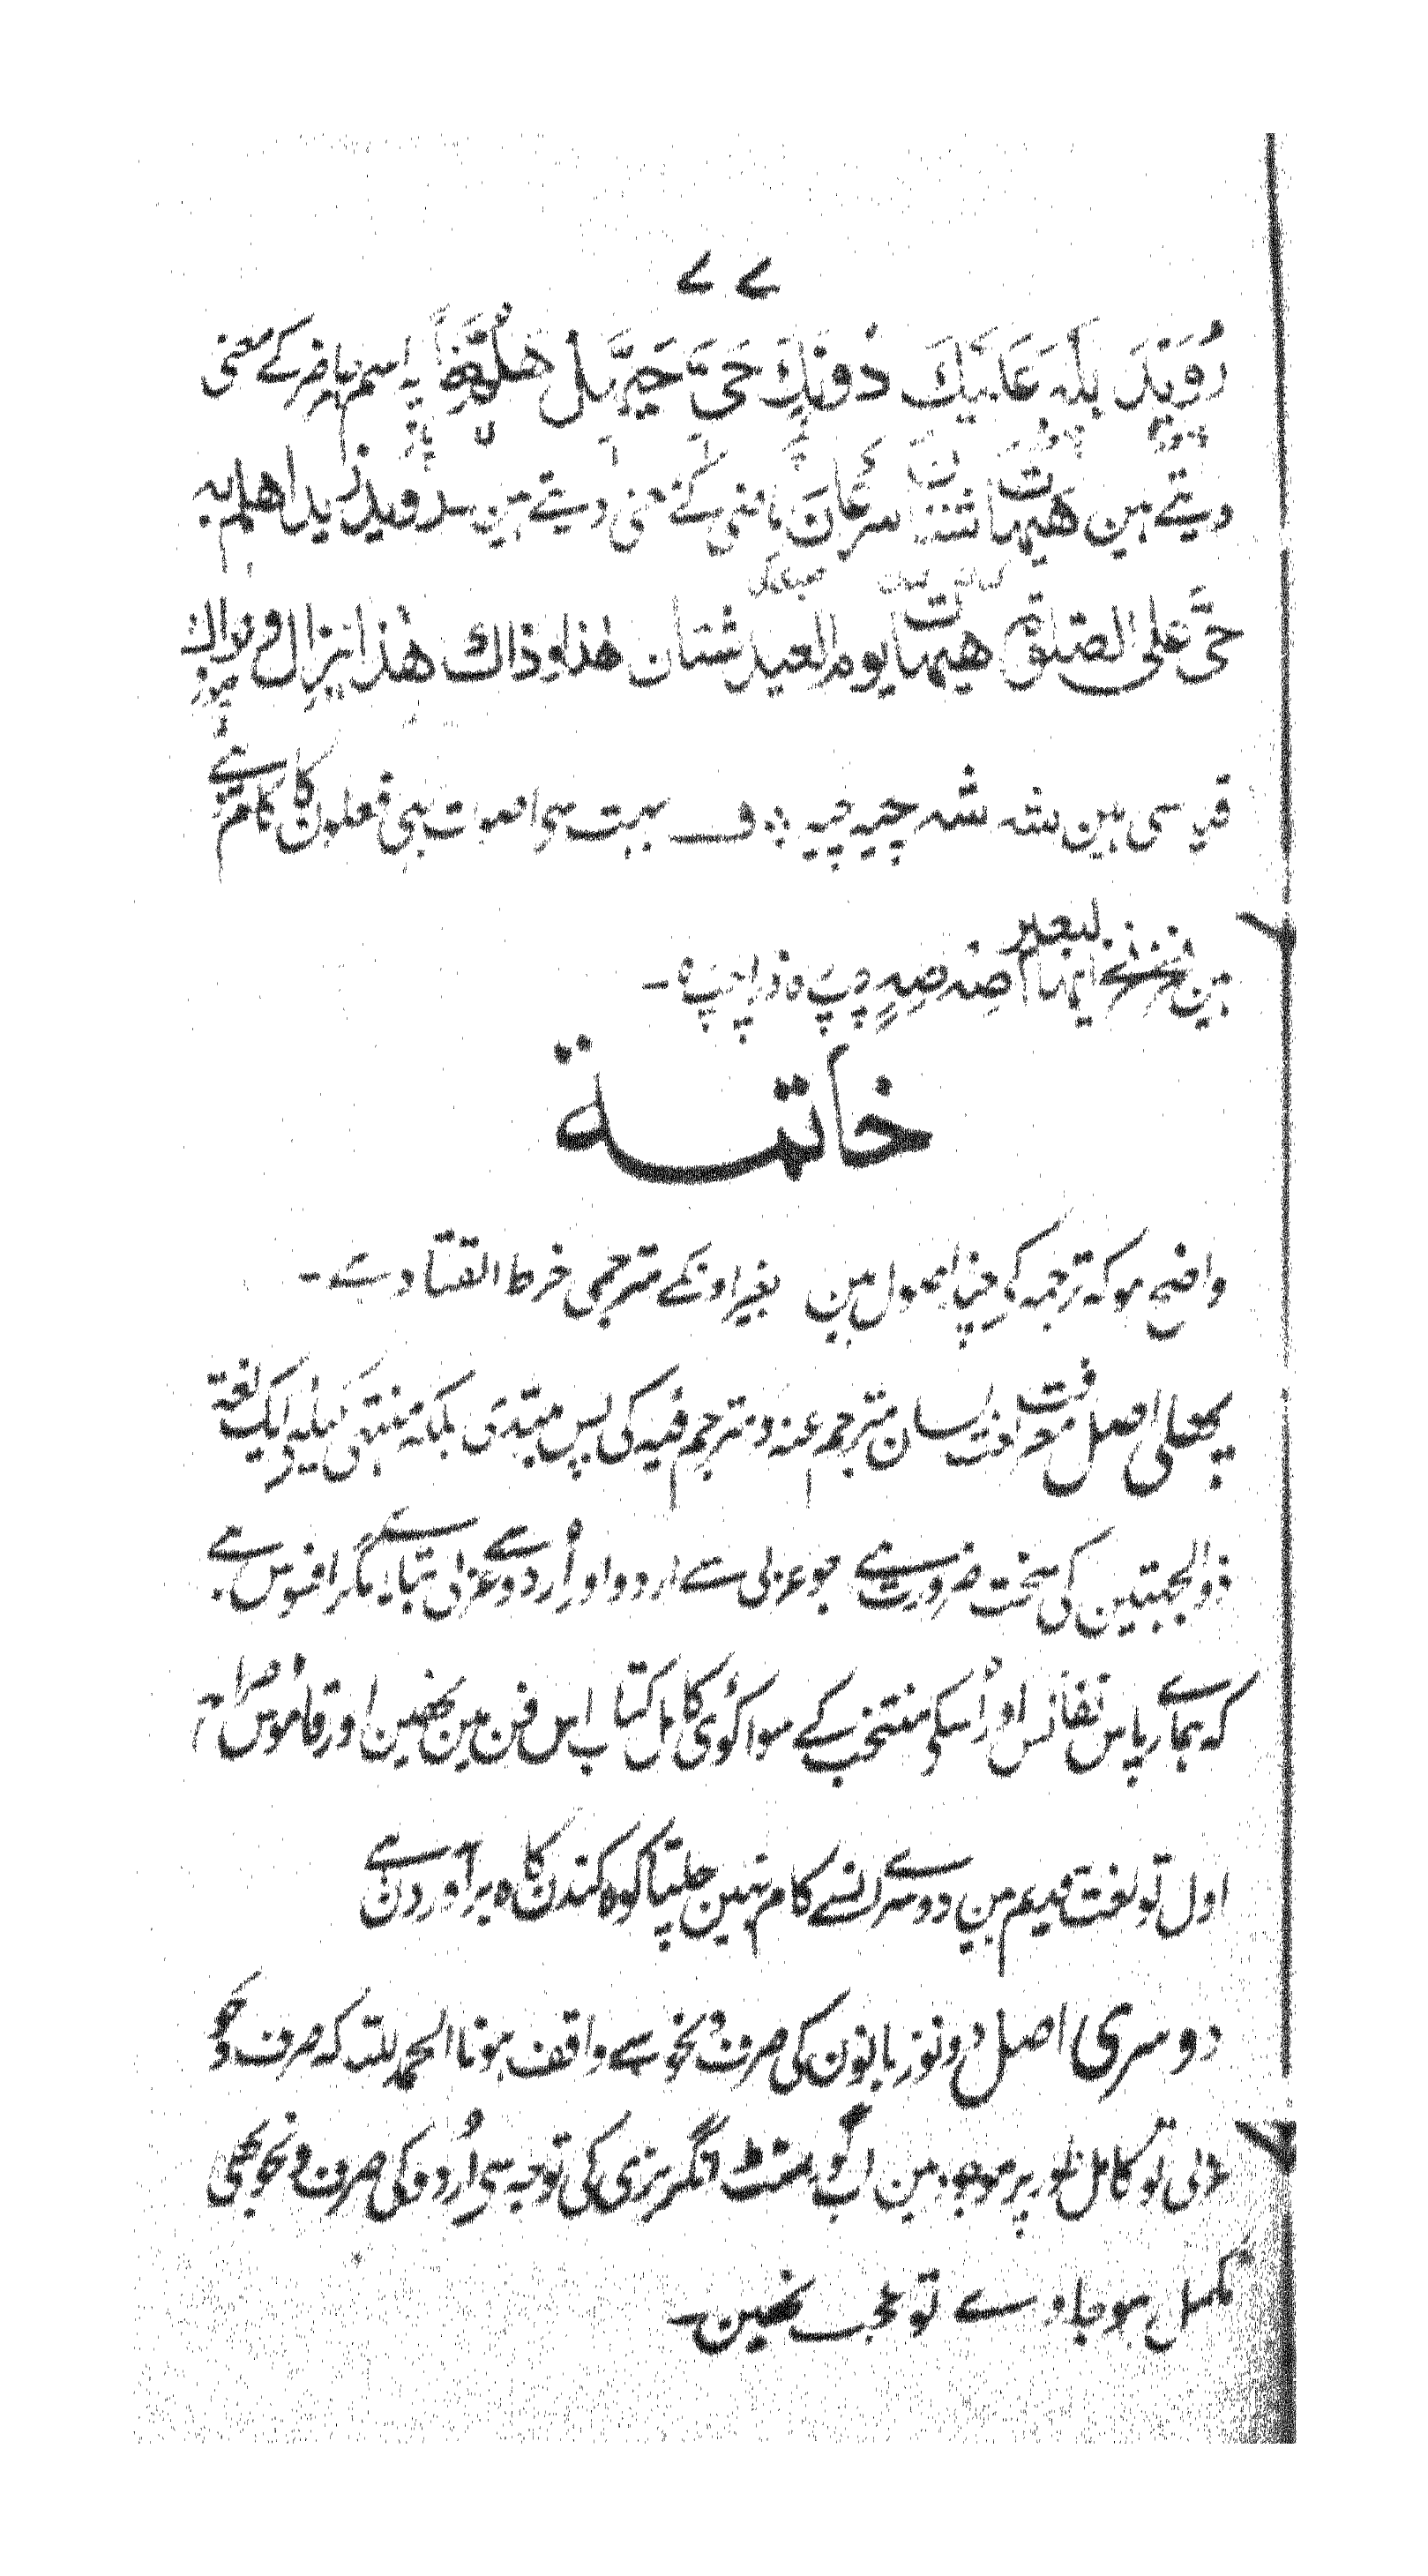 ۷۷
رُوَيْدَ بَلْهَ عَلَيْكَ دُونَكَ حَيَّ حَيَّهَل هَلُمَّ یہ اسم امر حاضر کے معنی
دیتے ہین هَيهَات شتان سَرعَانَ ماضی کے معنی دیتے ہین رويد زيدا هلم به
حَيَّ على الصلوة هيهات يوم العيد شتان هذا وذاك هذا نزال و
فارسی مین شہ شہ چیہ چیہ ؞ ف بہت سی اصوات بھی فعلون کا کام
مین نخ نخ لبعير ایہا صہ صہٍ چپ رہ ذرا چپ رہ ۔
خاتمة
واضح ہو کہ ترجمہ کی چند اصول ہین بغیر اونکے مترجمی خرط القتاد ہے ۔
پہلی اصل معرفت لغت لسان مترجم عنہ و مترجم فیہ کی پس مبتدی بلکہ منتہی کیلیے ایک لغت
ذو الجہتین کی سخت ضرورت ہے جو عربی سے اردو اور اُردو سے عربی بتاے مگر افسوس ہے
کہ ہمارے پاس نفائس اور اُسکی منتخب کے سوا کوئی کامل کتاب اس فن مین نہین اور قاموس صراح
اول تو لغت میم مین دوسرے انسے کام نہین چلتا کوہ کندن کاہ برآوردن ہے
دوسری اصل دونو زبانون کی صرف و نحو سے واقف ہونا الحمد للہ کہ صرف و نحو
عربی تو کامل طور پر موجود ہین اب گورنمنٹ انگریزی کی توجہ سے اُردو کی صرف و نحو بھی
مکمل ہو جاوے تو عجب نہین ۔